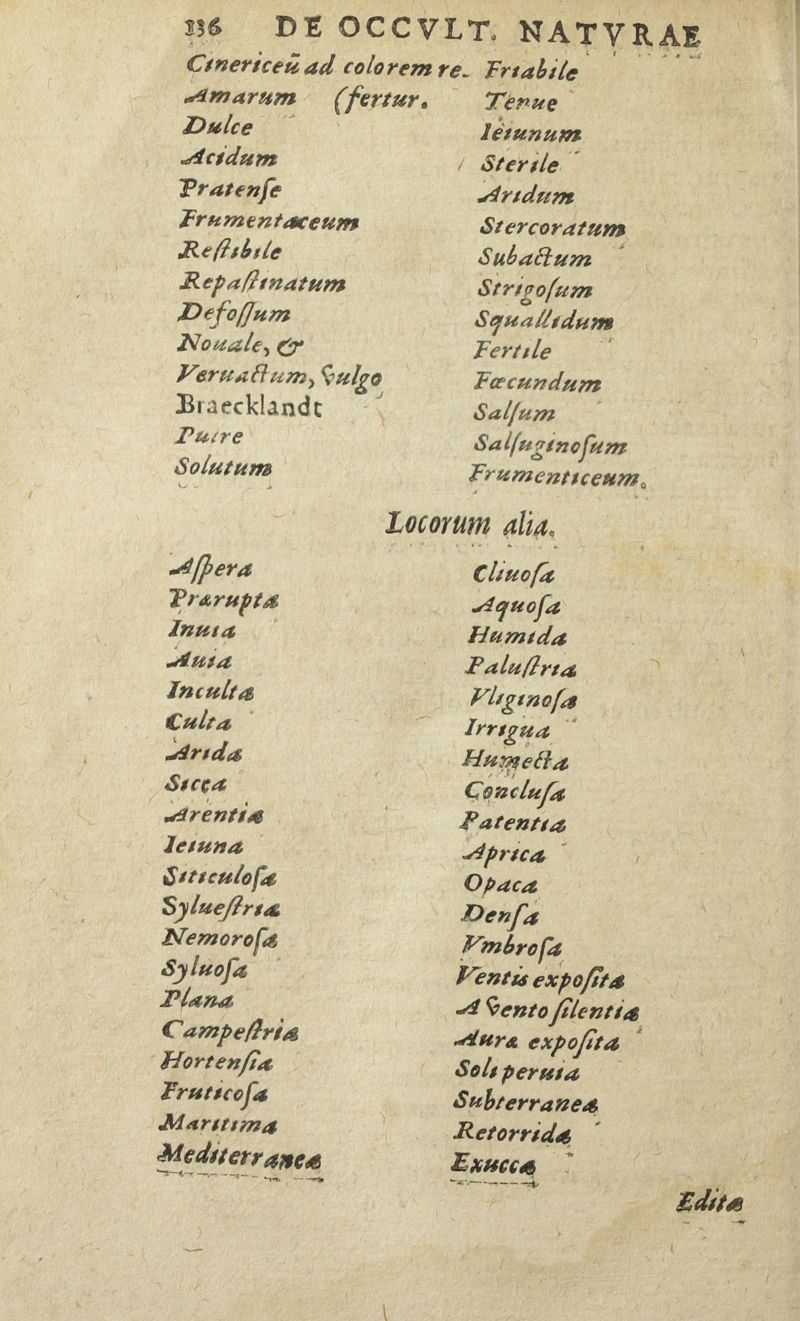 336 DE OCCVLT. NATVRAE
Cinericeũ ad colorem re-
Amarum (fertur.
Dulce
Acidum
Pratenſe
Frumentaceum
Reſtibile
Repaſtinatum
Defoſſum
Nouale, &
Veruactum, vulgo
Braecklandt
Putre
Solutum
Friabile
Tenue
Ieiunum
Sterile
Aridum
Stercoratum
Subactum
Strigoſum
Squallidum
Fertile
Fœcundum
Salſum
Salſuginoſum
Frumenticeum.
Locorum alia.
Aſpera
Prærupta
Inuia
Auia
Inculta
Culta
Arida
Sicca
Arentia
Ieiuna
Siticuloſa
Sylueſtria
Nemoroſa
Syluoſa
Plana
Campeſtria
Hortenſia
Fruticoſa
Maritima
Mediterranea
Cliuoſa
Aquoſa
Humida
Paluſtria
Vliginoſa
Irrigua
Humecta
Concluſa
Patentia
Aprica
Opaca
Denſa
Vmbroſa
Ventis expoſita
A vento ſilentia
Auræ expoſita
Soli peruia
Subterranea
Retorrida
Exucca
Edita